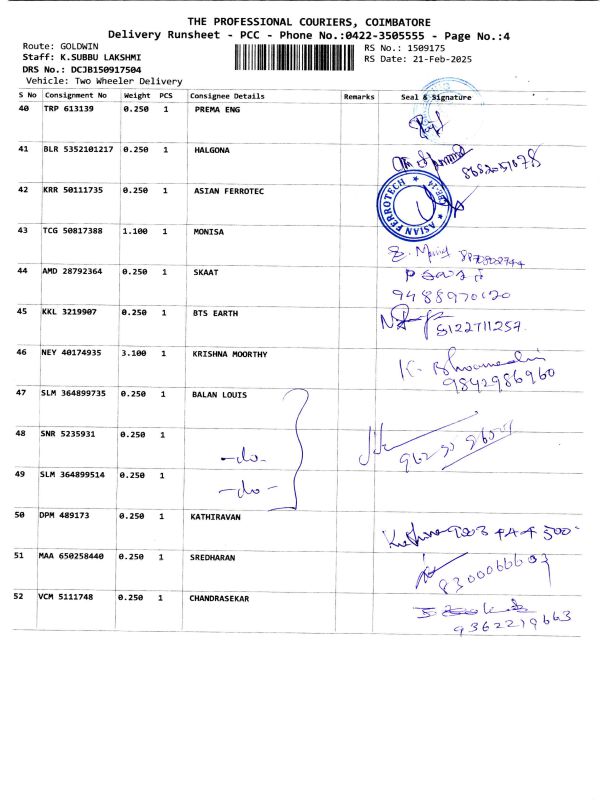 THE PROFESSIONAL COURIERS, COIMBATORE
Delivery Runsheet - PCC - Phone No.:0422-3505555 - Page No.:4
Route: GOLDWIN RS No.: 1509175
Staff: K.SUBBU LAKSHMI RS Date: 21-Feb-2025
DRS No.: DCJB150917504
Vehicle: Two Wheeler Delivery
S No Consignment No Weight PCS Consignee Details Remarks Seal & Signature
40 TRP 613139 0.250 1 PREMA ENG
41 BLR 5352101217 0.250 1 HALGONA
42 KRR 50111735 0.250 1 ASIAN FERROTEC
ASIAN FERROTECH
CBE-14
43 TCG 50817388 1.100 1 MONISA
44 AMD 28792364 0.250 1 SKAAT
9488970120
45 KKL 3219907 0.250 1 BTS EARTH
46 NEY 40174935 3.100 1 KRISHNA MOORTHY
9842986960
47 SLM 364899735 0.250 1 BALAN LOUIS
48 SNR 5235931 0.250 1 -do-
49 SLM 364899514 0.250 1 -do-
50 DPM 489173 0.250 1 KATHIRAVAN
51 MAA 650258440 0.250 1 SREDHARAN
8300066603
52 VCM 5111748 0.250 1 CHANDRASEKAR
9362219663